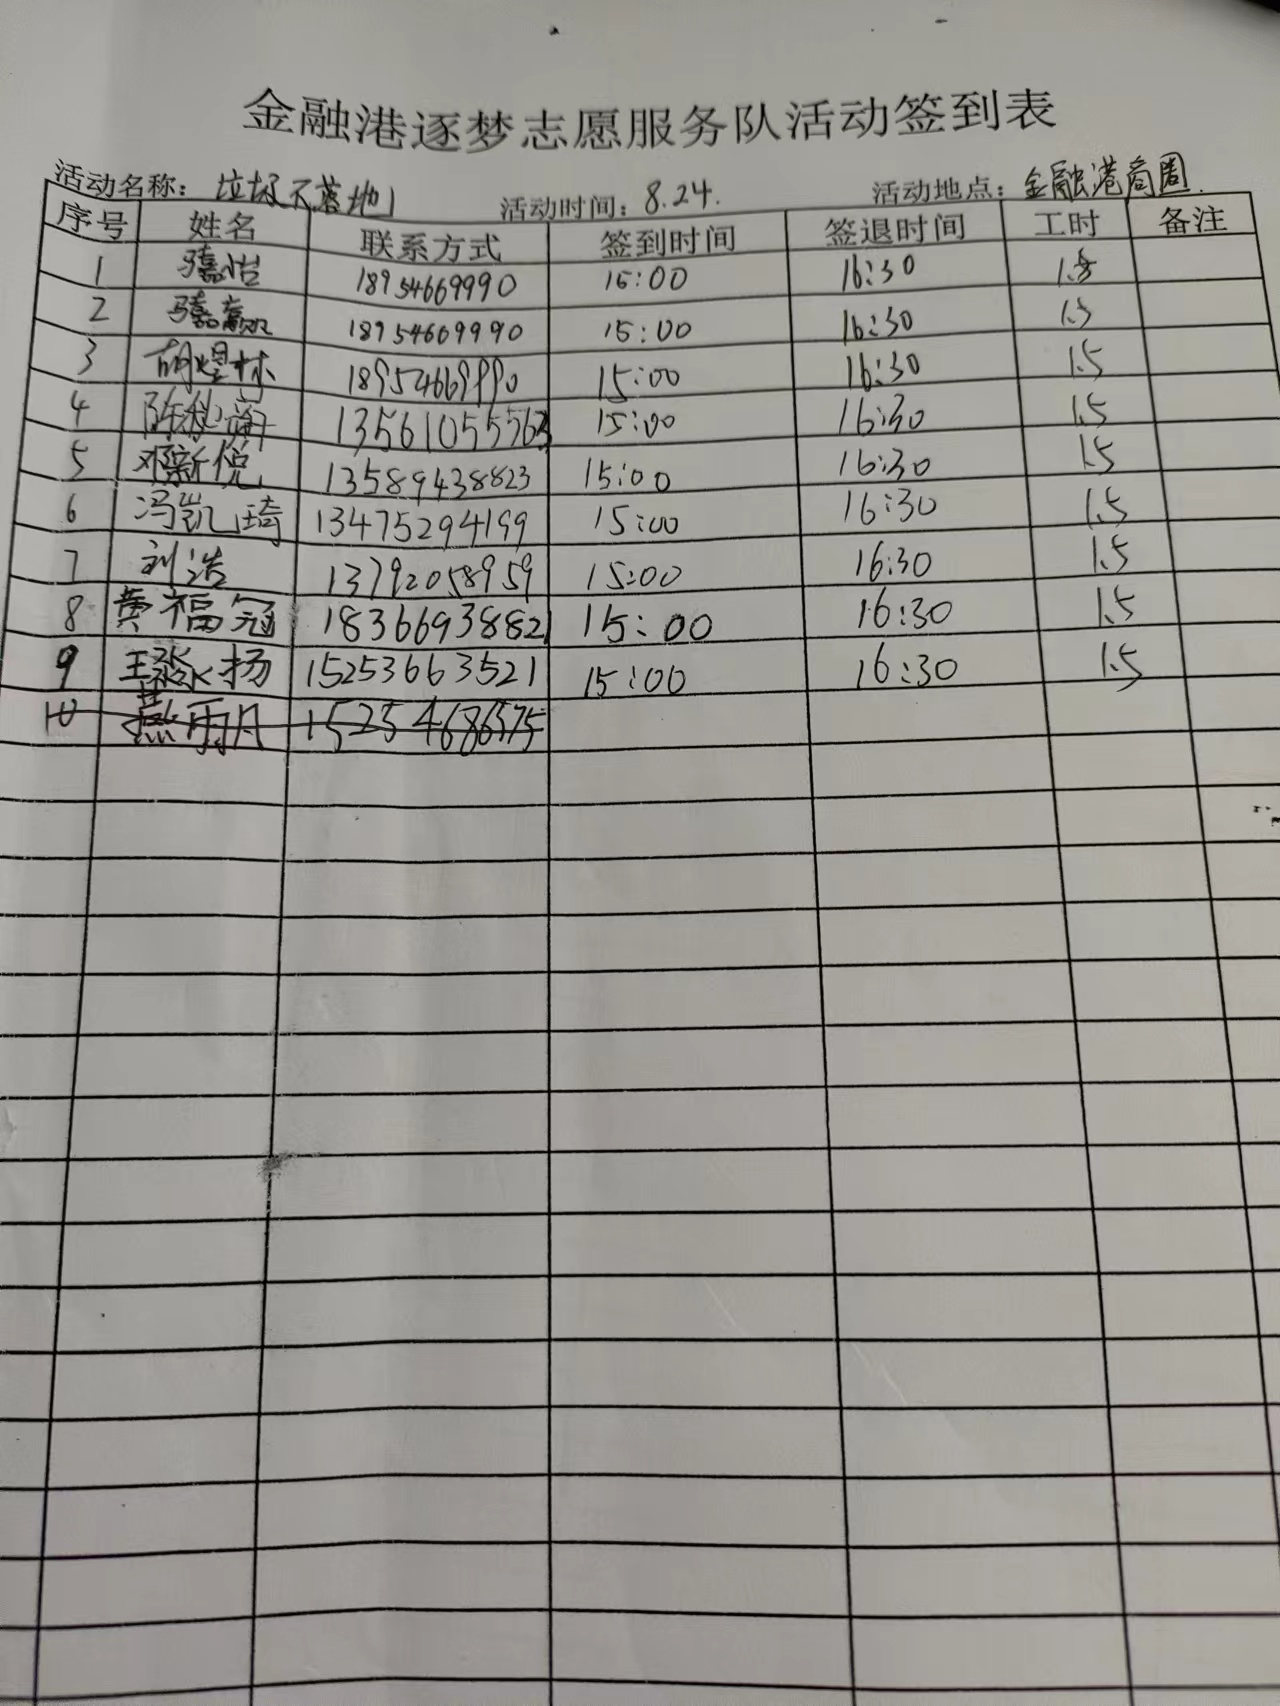 金融港逐梦志愿服务队活动签到表
活动名称：垃圾不落地 活动时间：8.24. 活动地点：金融港商圈.
序号 姓名 联系方式 签到时间 签退时间 工时 备注
1 18954669990 15:00 16:30 1.5
2 18954669990 15:00 16:30 1.5
3 胡煜林 18954669990 15:00 16:30 1.5
4 13561055563 15:00 16:30 1.5
5 邓新悦 13589438823 15:00 16:30 1.5
6 冯凯琦 13475294199 15:00 16:30 1.5
7 刘浩 13792058959 15:00 16:30 1.5
8 黄福冠 18366938821 15:00 16:30 1.5
9 15253663521 15:00 16:30 1.5
10 燕雨凡 15254686575